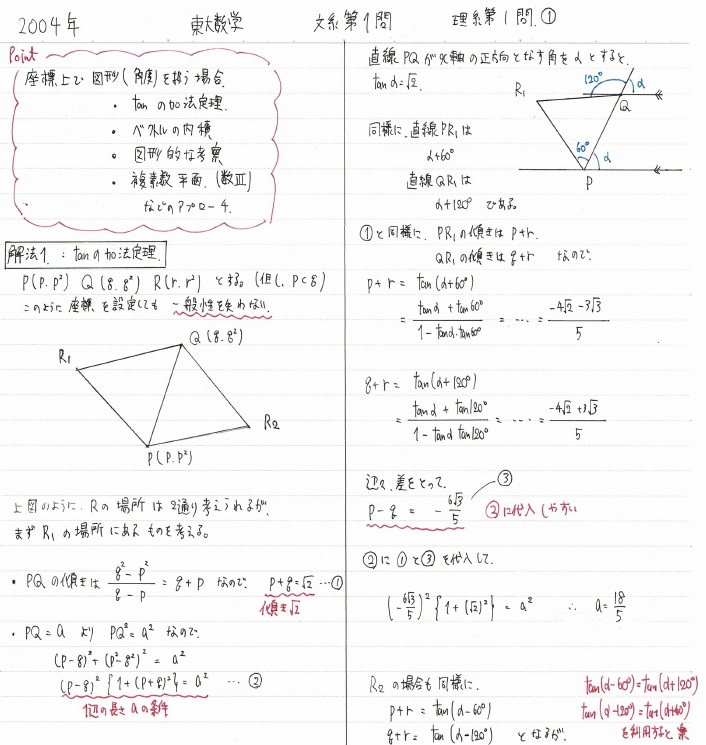 2004年 東大数学 文系第1問 理系第1問 ①
Point
座標上で図形(角度)を扱う場合
・ tan の加法定理
・ ベクトルの内積
・ 図形的な考察
・ 複素数平面 (数III)
などのアプローチ.
解法1. : tanの加法定理.
P(p.p²) Q(q.q²) R(r.r²) とする。(但し、p<q)
このように座標を設定しても 一般性を失わない.
Q(q.q²)
R₁
R₂
P(p.p²)
上図のように、Rの場所は2通り考えられるが、
まず R₁の場所にあるものを考える。
・ PQの傾きは (q²-p²)/(q-p) = q+p なので p+q=√2 …①
傾き√2
・ PQ=a より PQ²=a² なので.
(p-q)²+(p²-q²)² = a²
(p-q)²{1+(p+q)²} = a² … ②
1辺の長さaの条件
直線PQがx軸の正方向となす角をαとすると、
tanα=√2.
120° α
R₁
Q
60° α
P
同様に、直線PR₁は
α+60°
直線QR₁は
α+120° である。
①と同様に、PR₁の傾きは p+r.
QR₁の傾きは q+r なので.
p+r = tan(α+60°)
= (tanα + tan60°)/(1-tanα·tan60°) = …… = (-4√2-3√3)/5
q+r = tan(α+120°)
= (tanα + tan120°)/(1-tanα tan120°) = …… = (-4√2+3√3)/5
辺々、差をとって.
③
p-q = -6√3/5 ②に代入しやすい
②に①と③を代入して.
(-6√3/5)²{1+(√2)²} = a² ∴ a=18/5
R₂の場合も同様に.
p+r = tan(α-60°)
q+r = tan(α-120°) となるが.
tan(α-60°)=tan(α+120°)
tan(α-120°)=tan(α+60°)
を利用すると楽